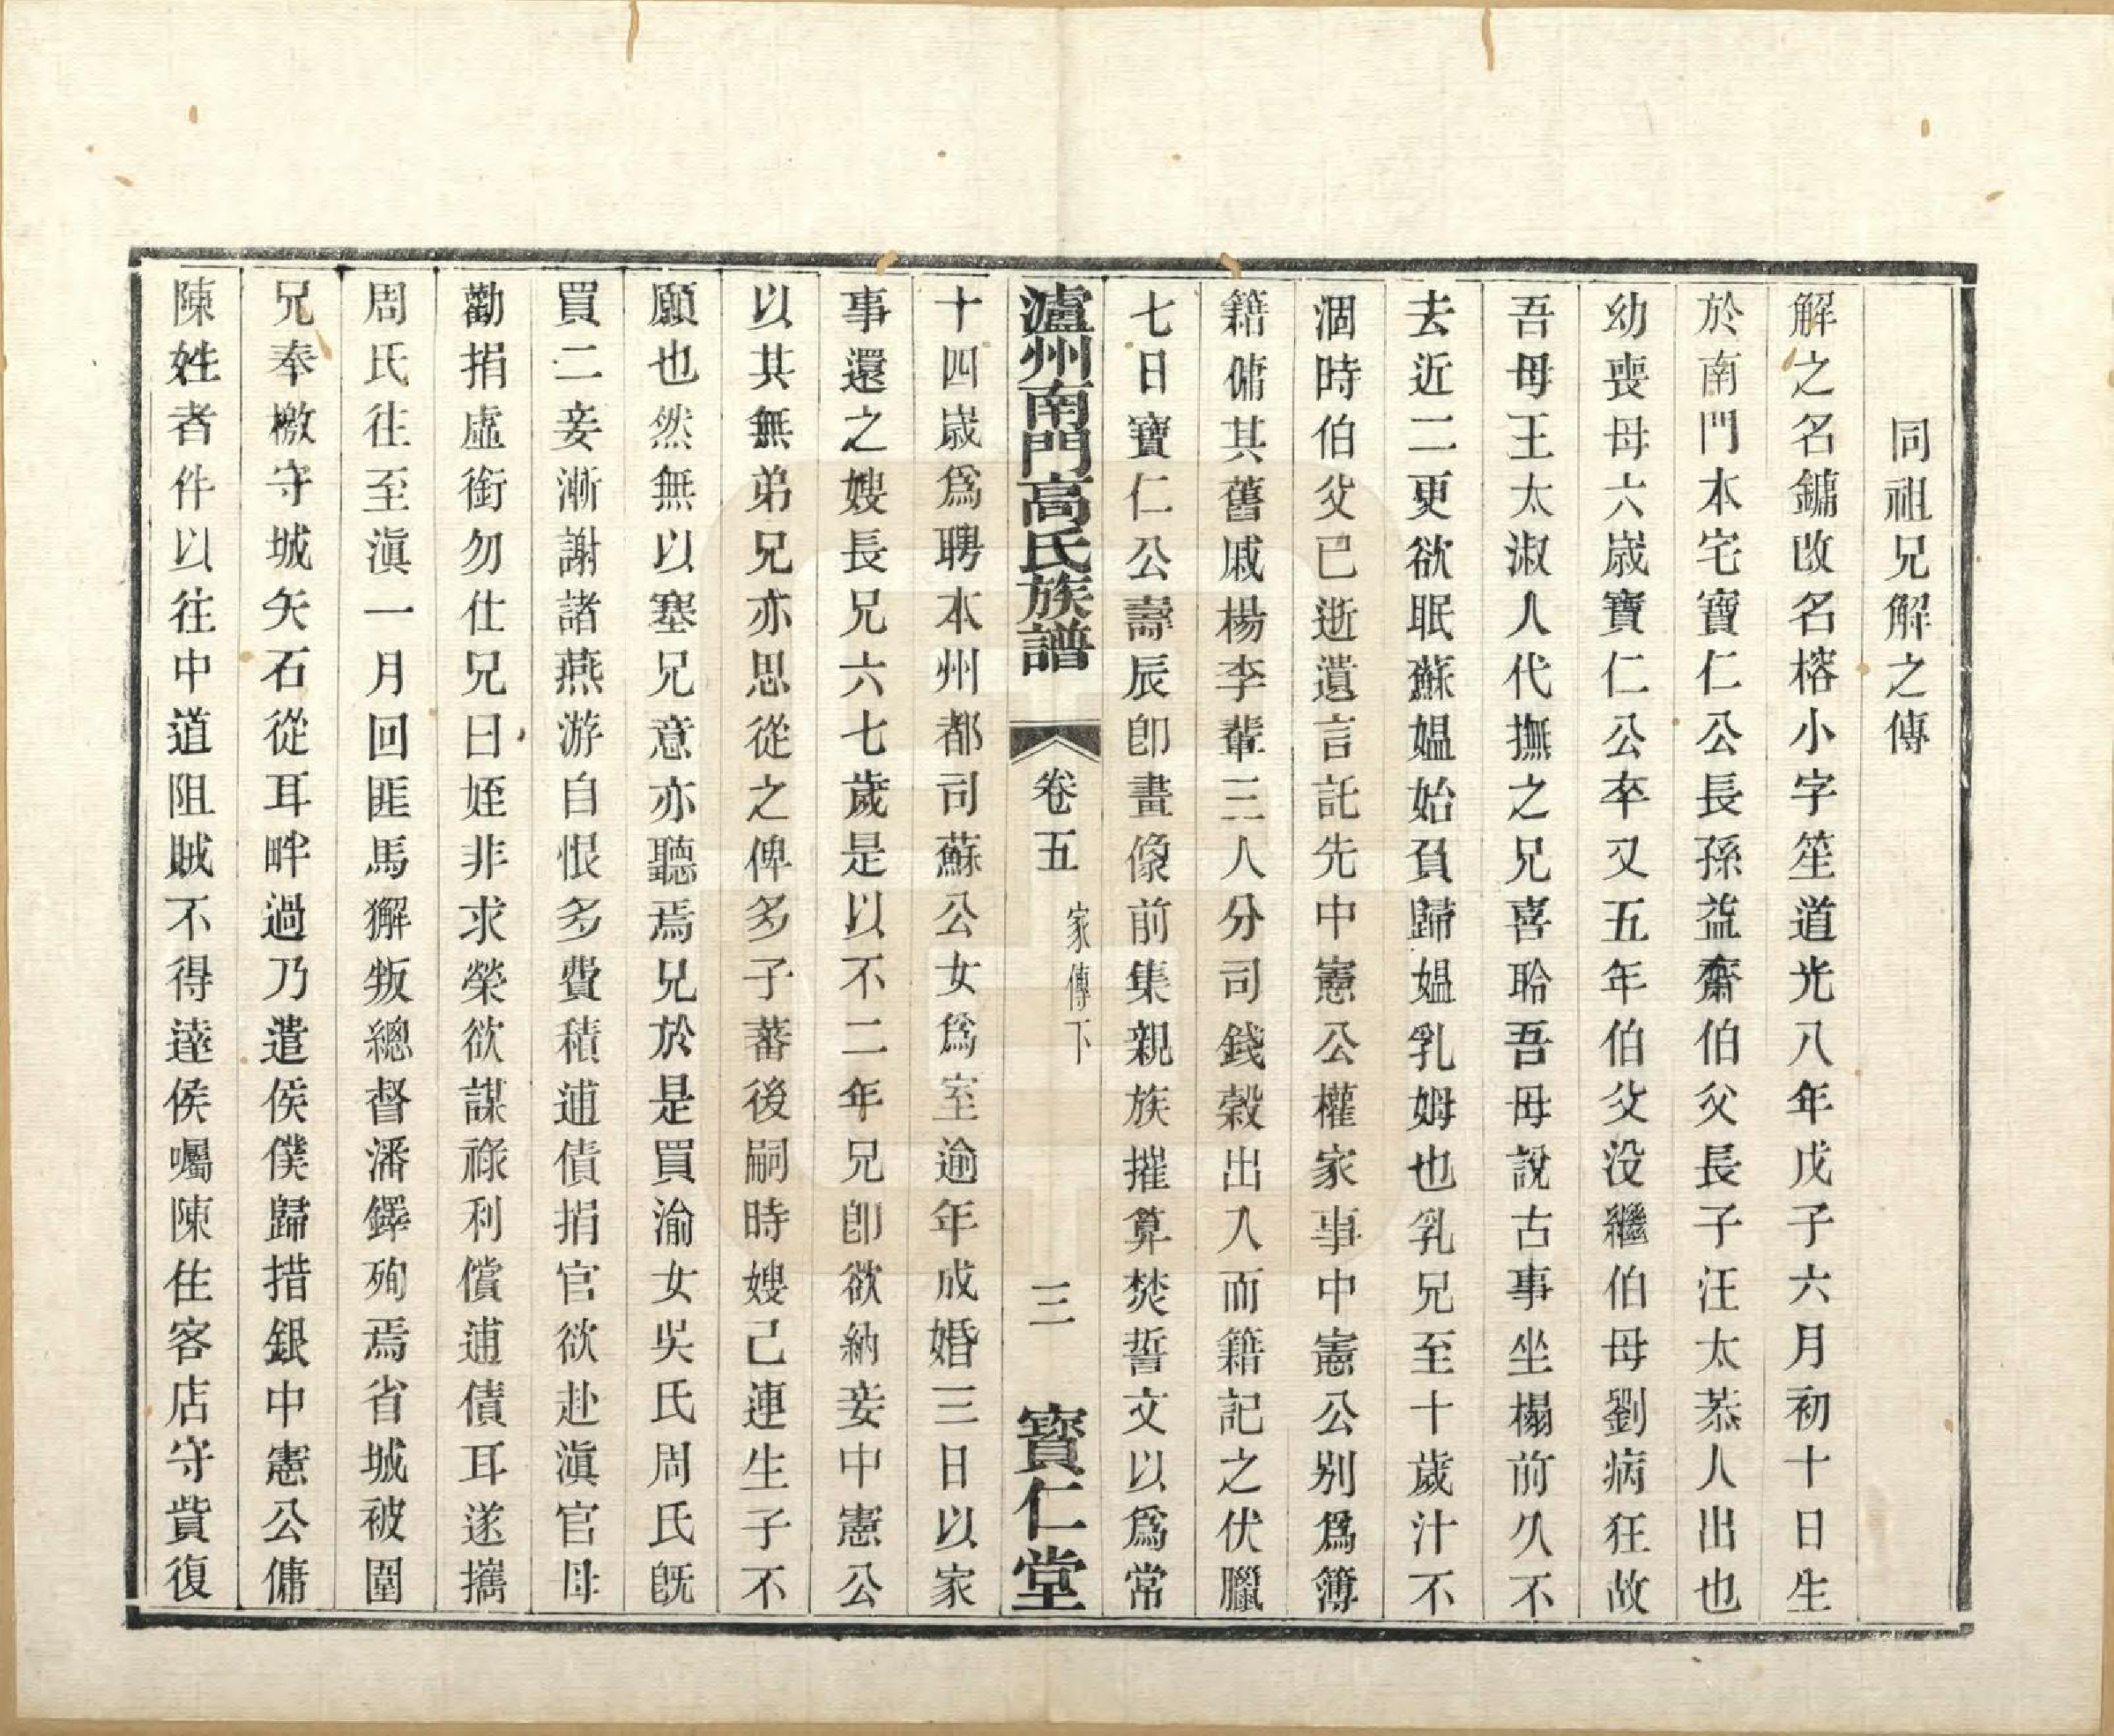 同祖兄解之傳
解之名鏞改名榕小字笙道光八年戊子六月初十日生
於南門本宅寶仁公長孫益齋伯父長子汪太恭人出也
幼喪母六歲寶仁公卒又五年伯父没繼伯母劉病狂故
吾母王太淑人代撫之兄喜聆吾母說古事坐榻前久不
去近二更欲眠蘇媼始負歸媼乳姆也乳兄至十歲汁不
涸時伯父已逝遺言託先中憲公權家事中憲公别爲簿
籍傭其舊戚楊李輩三人分司錢穀出入而籍記之伏臘
七日寶仁公壽辰卽畫像前集親族摧算焚誓文以爲常
瀘州南門高氏族譜 卷五 家傳下 三 寶仁堂
十四歲爲聘本州都司蘇公女爲室逾年成婚三日以家
事還之嫂長兄六七歲是以不二年兄卽欲納妾中憲公
以其無弟兄亦思從之俾多子蕃後嗣時嫂己連生子不
願也然無以塞兄意亦聽焉兄於是買渝女吳氏周氏旣
買二妾漸謝諸燕游自恨多費積逋債捐官欲赴滇官母
勸捐虛銜勿仕兄曰姪非求榮欲謀祿利償逋債耳遂攜
周氏往至滇一月回匪馬獬叛總督潘鐸殉焉省城被圍
兄奉檄守城矢石從耳畔過乃遣侯僕歸措銀中憲公傭
陳姓者件以往中道阻賊不得達侯囑陳住客店守貲復